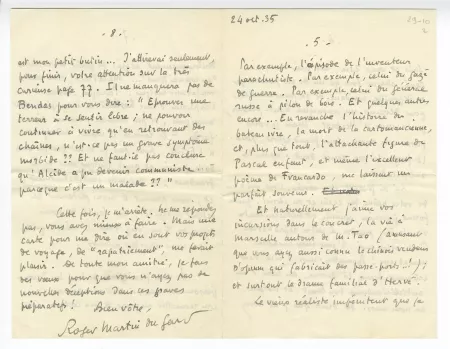 - 8 -
est mon petit butin... J'attirerai seulement,
pour finir, votre attention sur la très
curieuse page 77. Il ne manquera pas de
Bendas pour vous dire : "Eprouver une
terreur à se sentir libre ; ne pouvoir
continuer à vivre qu'en retrouvant des
chaînes, n'est-ce pas un grave symptôme
morbide ?? Et ne faut-il pas conclure
qu'Alcide a pu devenir communiste
parceque c'est un malade ??"
Cette fois, je m'arrête. Ne me répondez
pas, vous avez mieux à faire. Mais une
carte pour me dire où en sont vos projets
de voyage, de "rapatriement", me ferait
plaisir. De toute mon amitié, je fais
des vœux pour que vous n'ayez pas de
nouvelles déceptions dans ces graves
préparatifs !
Bien vôtre,
Roger Martin du Gard
24 oct. 35
- 5 -
Par exemple, l'épisode de l'inventeur
parachutiste. Par exemple, celui du
de guerre. Par exemple, celui du général
russe à pilon de bois. Et quelques autres
encore... En revanche l'histoire du
bateau ivre, la mort de la cartomancienne,
et, plus que tout, l'attachante figure de
Pascal enfant, et même l'excellent
poème de Francardo, me laissent un
parfait souvenir.
Et naturellement j'aime vos
incursions dans le concret, la vie à
Marseille autour de M. Tao (j'avais su
que vous ayez aussi connu le chinois vendeur
d'opium qui fabriquait des passe-ports..!);
et surtout le drame familial d'Hervé.
Le vieux réaliste impénitent que je